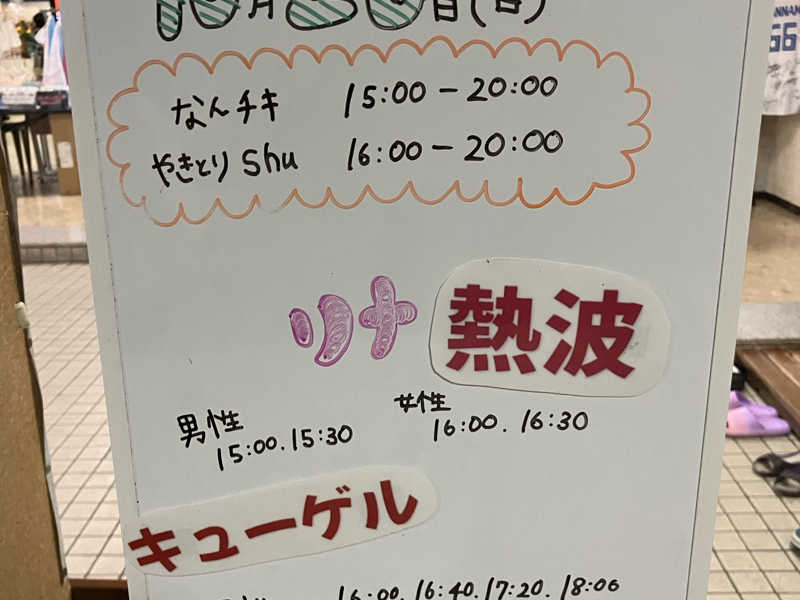 なんチキ 15:00-20:00
やきとりshu 16:00-20:00
リナ 熱波
男性 女性
15:00. 15:30 16:00. 16:30
キューゲル
16:00. 16:40. 17:20. 18:00
66